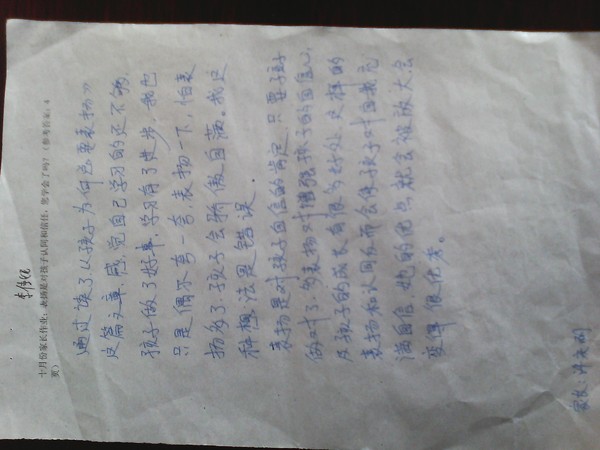 十月份家长作业：表扬是对孩子认同和信任，您学会了吗？（参考答案：4
页）
通过读了《孩子为何总要表扬》
这篇文章，感觉自己学习的还不够，
孩子做了好事，学习有了进步，我也
只是偶尔夸一夸表扬一下，怕表
扬多了，孩子会骄傲自满。我这
种想法是错误。
表扬是对孩子自信的肯定，只要孩子
做对了，多表扬对增强孩子的自信心，
及孩子的成长有很多好处，这样的
表扬和认同反而会使孩子对自我充
满自信，她的优点就会被放大会
变得很优秀。
家长：